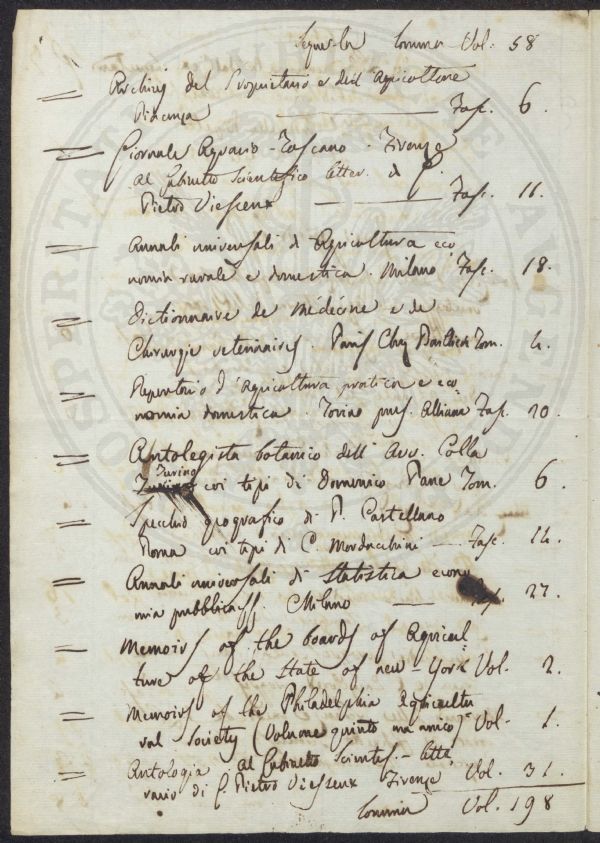 Segue la Somma Vol. 58
Archivj del Proprietario e dell'Agricoltore
Piacenza Fasc. 6.
Giornale Agrario-Toscano. Firenze
al Gabinetto Scientifico Letter. di G.
Pietro Viesseux Fasc. 11.
Annali universali di Agricoltura eco
nomia rurale e domestica. Milano Fasc. 18.
Dictionnaire de Médécine e de
Chirurgie veterinaires. Paris Chez Tom. 4.
Repertorio d'agricoltura pratica e eco
nomia domestica. Torino Fasc. 20.
Antolegista botanico dell' Avv. Colla
Turino coi tipi di Domenico Pane Tom. 6.
Specchio geografico di P. Castellano
Roma coi tipi di C. Mordacchini Fasc. 14.
Annali universali di Statistica econo
mia pubblica Milano 27.
Memoirs of the boards of Agricul
ture of the State of new-York Vol. 2.
Memoirs of the Philadelphia Agricultu
ral Society (Volume quinto ma unico) Vol. 1.
Antologia al Gabinetto Scientif. - Lette
rario di G. Pietro Viesseux Firenze Vol. 31.
Somma Vol. 198